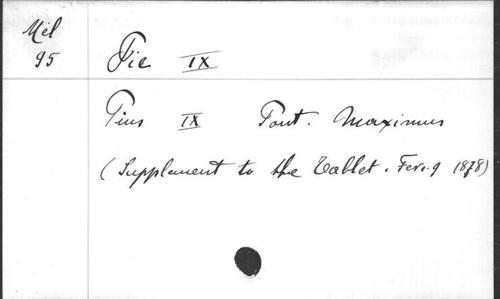 Mél
95
Pie IX
Pius IX Pont. Maximus
(Supplement to the Tablet. Fevr. 9 1878)